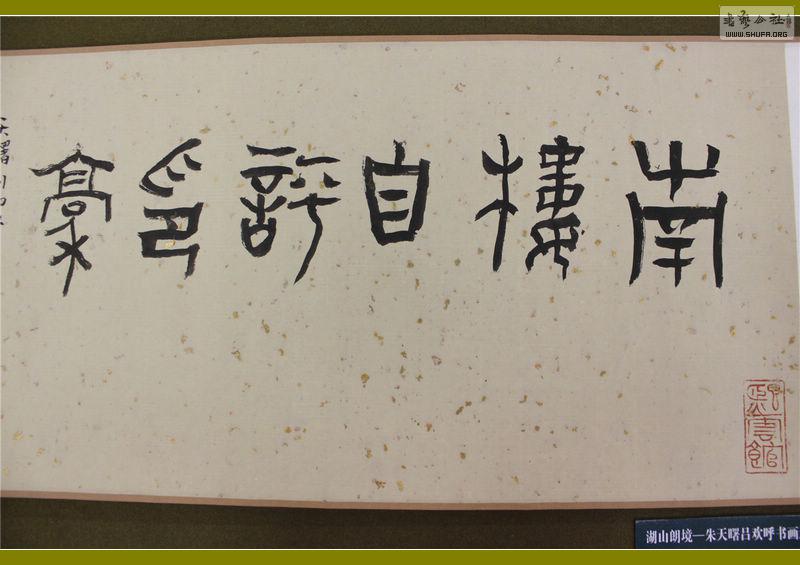 書藝公社
WWW.SHUFA.ORG
南樓自評印槀
天曙
湖山朗境—朱天曙吕欢呼书画